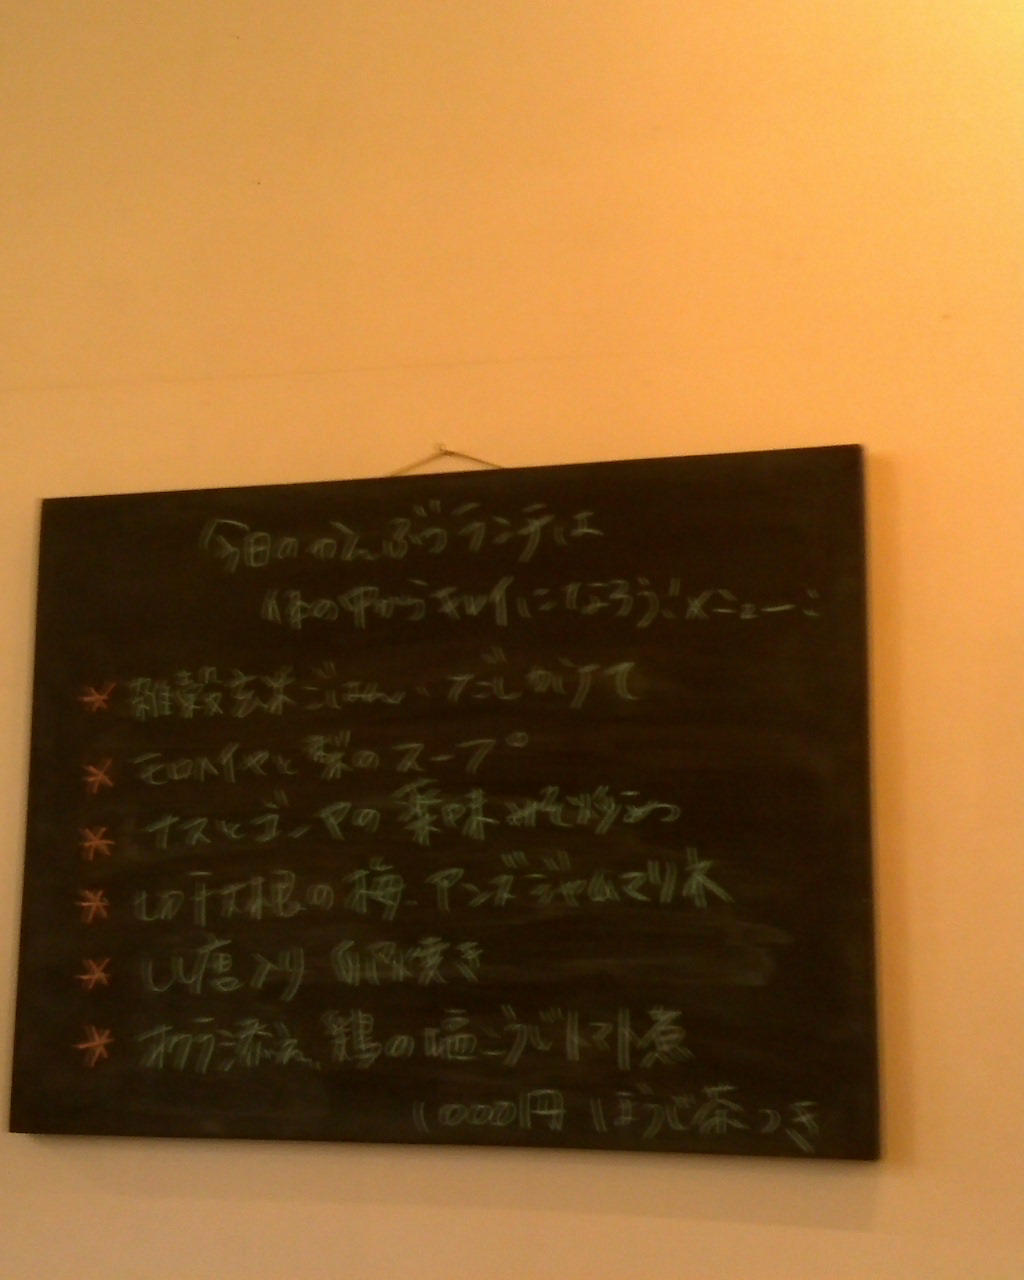 今日のかんぶつランチは
体の中からキレイになろう!メニュー
* 雑穀玄米ごはん、だしがけて
* モロヘイヤと梨のスープ
* ナスとゴーヤの香味みそ炒め
* 切干大根の梅、アンズジャムマリネ
* しし唐入り卵焼き
* オクラ添え、鶏の塩こうじトマト煮
1000円 ほうじ茶つき